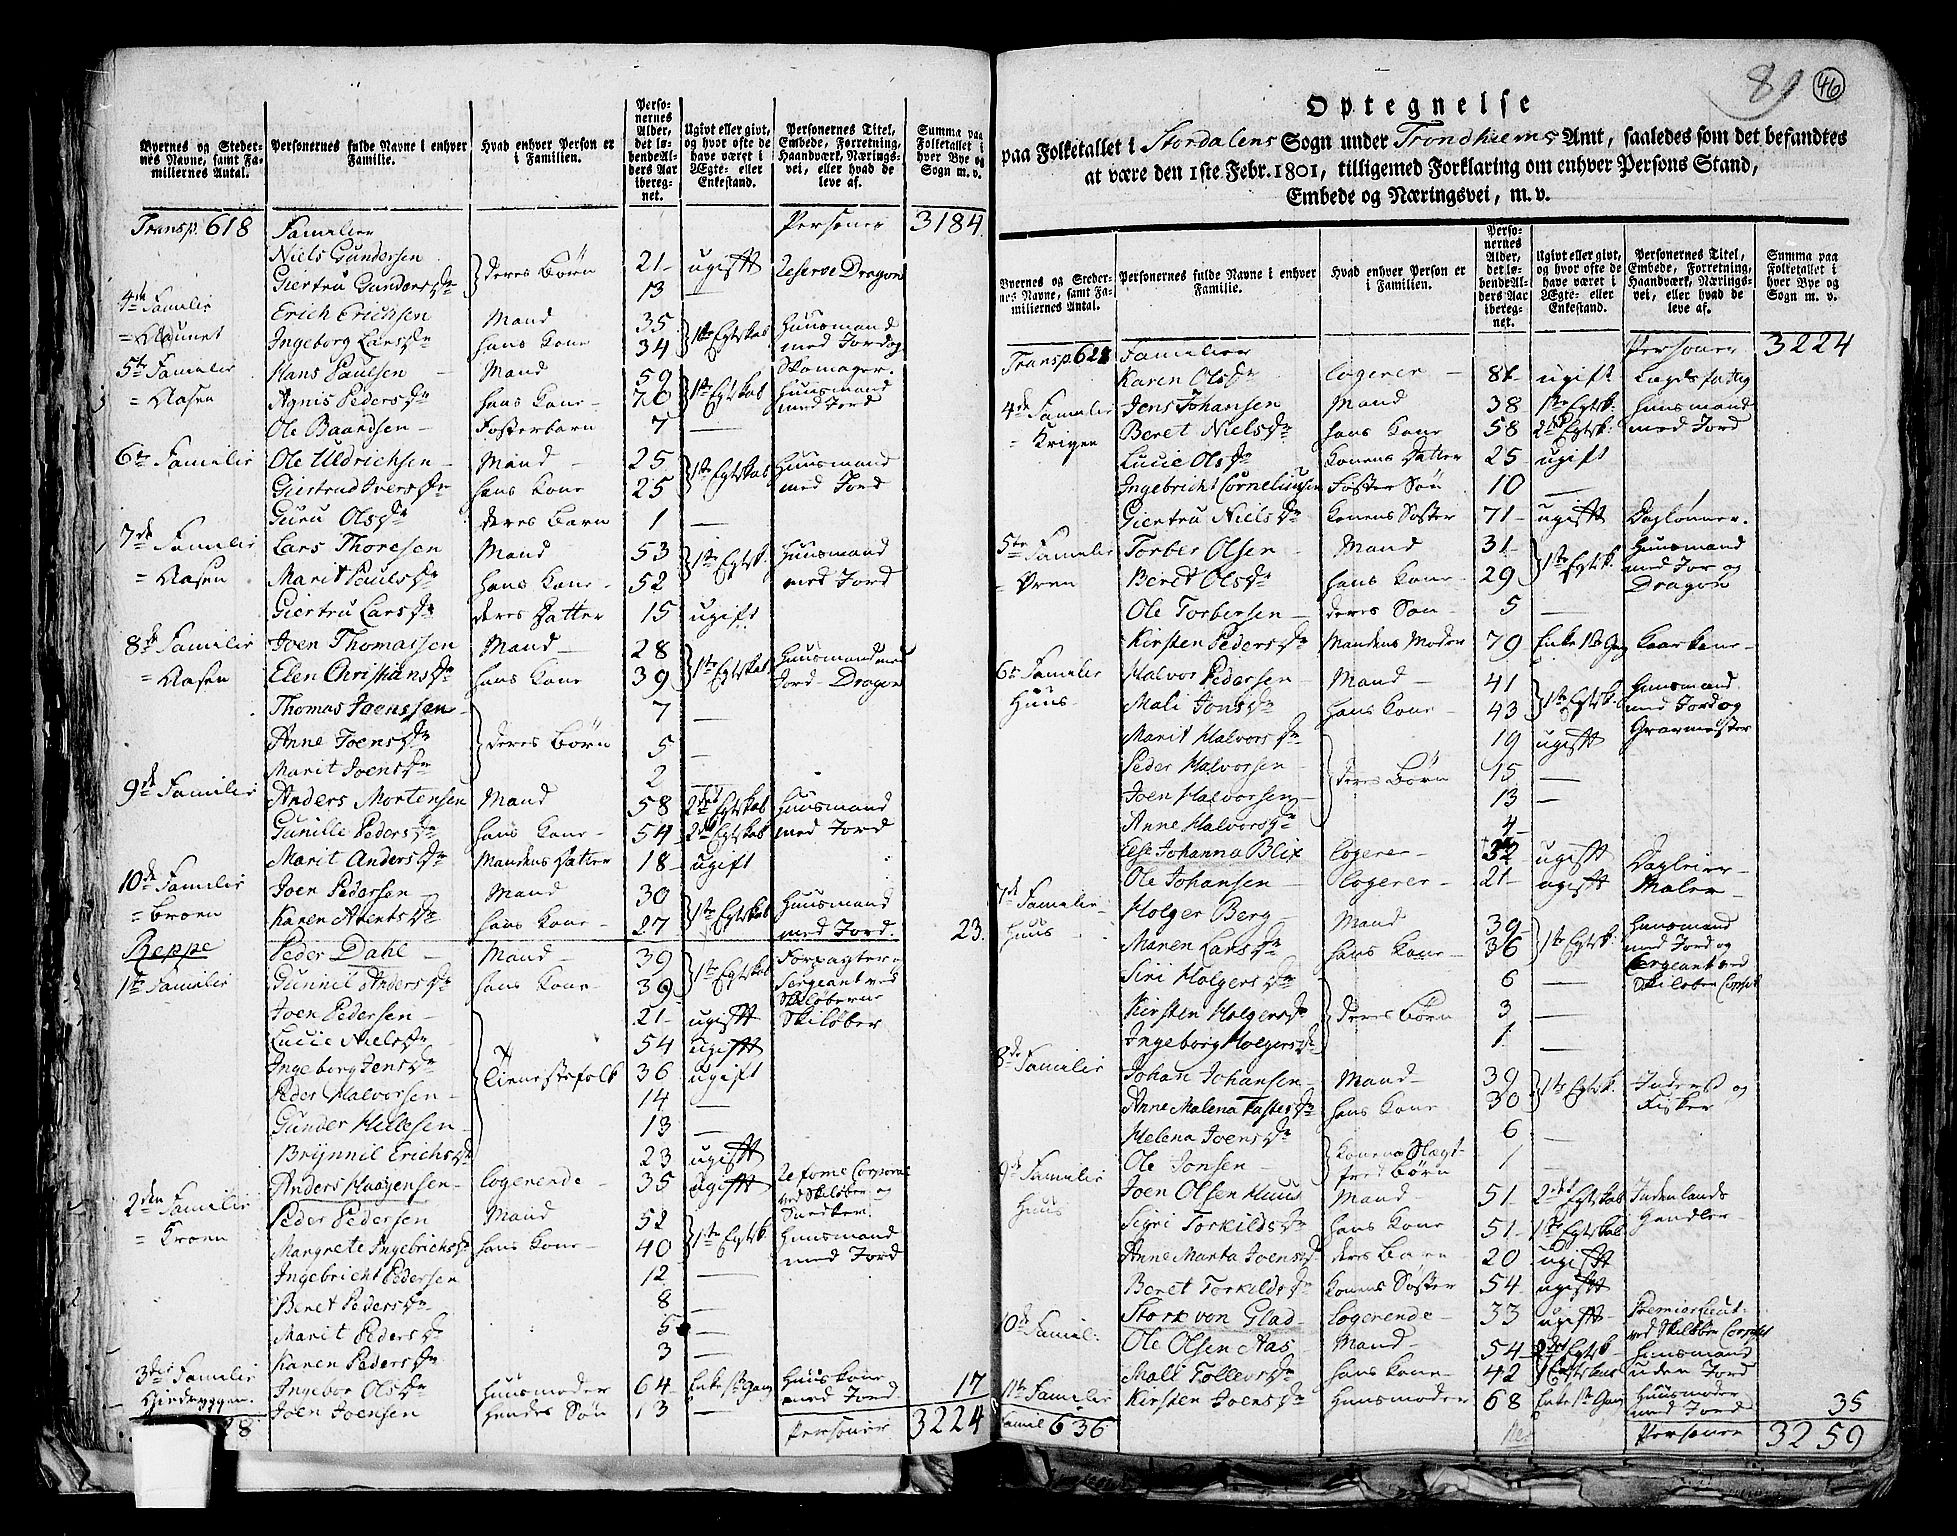 Byernes og Stedernes Navne, samt Familiernes Antal. | Personernes fulde Navne i enhver Familie. | Hvad enhver Person er i Familien. | Personernes Alder, det løbende Alders Aar iberegnet. | Ugivt eller givt, og hvor ofte de have været i Ægte- eller Enkestand. | Personernes Titel, Embede, Forretning, Haandværk, Næringsvei, eller hvad de leve af. | Summa paa Folketallet i hver Bye og Sogn m. v.
Transp. 618 Familier Personer 3184.
Niels Gundersen deres Børn 21 ugift Reserve Dragon
Giertru Gundersdr 13 —
4de Familie Erich Erichsen Mand 35 1ste Egtskab Huusmand
= Aunet Ingeborg Larsdr hans Kone 34 med Jord og
5te Familie Hans Paulsen Mand 59 1ste Egtskab Skomager.
= Aasen Agnis Pedersdr hans Kone 76 Huusmand med Jord
Ole Baardsen Fosterbarn 7 —
6te Familie Ole Uldrichsen Mand 25 1ste Egtskab Huusmand
Giertrud Iversdr hans Kone 25 med Jord
Guru Olsdr deres Barn 1 —
7de Familie Lars Thoresen Mand 53 1ste Egtsk. Huusmand
= Aasen Marit Paulsdr hans Kone 52 med Jord
Giertru Larsdr deres Datter 15 ugift
8de Familie Joen Thomassen Mand 28 1ste Egtskab Huusmand med
= Aasen Elen Christiansdr hans Kone 39 Jord Dragon
Thomas Joenssen deres Børn 7 —
Anne Joensdr 5 —
Marit Joensdr 2 —
9de Familie Anders Mortensen Mand 58 2det Egtskab Huusmand
Gunille Pedersdr hans Kone 54 2det Egtskab med Jord
Marit Andersdr Mandens Datter 18 ugift
10de Familie Joen Pedersen Mand 30 1ste Egtskab Huusmand
= Broen Karen Arentsdr hans Kone 27 med Jord. 23.
Reppe Peder Dahl Mand 39 1ste Egtskab Forpagter
1te Familie Gunnil Andersdr hans Kone 39 Sergeant ved Skiløberne
Joen Pedersen Tienestefolk 21 ugift Skiløber
Lucie Nielsdr 54 ugift
Ingeborg Jensdr 36 ugift
Peder Halvorsen 14 —
Gunder Hellesen 13 —
Brynnil Erichsdr 23 ugift
Anders Haagensen Logerende 35 ugift Corporal ved Skiløbe og Snedker
2den Familie Peder Pedersen Mand 52 1ste Egtsk. Huusmand
= Kroen Margrete Ingebrichtsdr hans Kone 40 med Jord
Ingebricht Pedersen 12 —
Beret Pedersdr 8 —
Marit Pedersdr 5 —
Karen Pedersdr 3 —
3die Familie Ingebor Olsdr Huusmoder 64 Enke 1ste Gang Huuskone med Jord 17
Joen Joensen hendes Søn 13 —
28 Personer 3224
81 46
Optegnelse
paa Folketallet i Stordalens Sogn under Trondhiems Amt, saaledes som det befandtes
at være den 1ste Febr. 1801, tilligemed Forklaring om enhver Persons Stand,
Embede og Næringsvei, m. v.
Byernes og Stedernes Navne, samt Familiernes Antal. | Personernes fulde Navne i enhver Familie. | Hvad enhver Person er i Familien. | Personernes Alder, det løbende Alders Aar iberegnet. | Ugivt eller givt, og hvor ofte de have været i Ægte- eller Enkestand. | Personernes Titel, Embede, Forretning, Haandværk, Næringsvei, eller hvad de leve af. | Summa paa Folketallet i hver Bye og Sogn m. v.
Transp. 628 Familier Personer 3224
Karen Olsdr Logerer 81 ugift Lægdsfattig
4de Familie Jens Johansen Mand 38 1ste Egtsk. Huusmand
= Krigen Beret Nielsdr hans Kone 58 2det Egtsk. med Jord
Lucie Olsdr Konens Datter 25 ugift
Ingebricht Corneliussen Foster Søn 10 —
Giertru Nielsdr Konens Søster 71 ugift Daglønner.
5te Familie Torber Olsen Mand 31 1ste Egtsk. Huusmand
= Øren Beret Olsdr hans Kone 29 med Jor og Dragon
Ole Torbersen deres Søn 5 —
Kirsten Pedersdr Mandens Moder 79 Enke 1ste Gang Kaarkone
6te Familie Halvor Pedersen Mand 41 1ste Egtsk. Huusmand
Huus Mali Jonsdr hans Kone 43 med Jord og
Marit Halvorsdr deres Børn 19 ugift
Peder Halvorsen 15 —
Joen Halvorsen 13 —
Anne Halvorsdr 4
Else Johanna Blix Logerer 32 ugift
Ole Johansen Logerer 21 ugift Maler
7de Familie Holger Berg Mand 39 1ste Egtsk. Huusmand
Huus Maren Larsdr hans Kone 36 med Jord og
Siri Holgersdr deres Børn 6 — Sergeant ved Skiløber Corpset
Kirsten Holgersdr 3 —
Ingeborg Holgersdr 1 —
8de Familie Johan Johansen Mand 39 1ste Egtsk. Inderst og
Anne Malena Fastesdr hans Kone 30 Fisker
Helena Joensdr Konens Slægt 6 —
Ole Jonsen Børn 1 —
9de Familie Joen Olsen Huus Mand 51 2det Egtskab Indenlands
Huus Sigri Torkildsdr hans Kone 51 1ste Egtskab Handler
Anne Marta Joensdr deres Barn 20 ugift
Beret Torkildsdr Konens Søster 54 ugift
10de Famil: Stork von Glad Logerende 33 ugift Premierlieut: ved Skiløbe Corpset
Ole Olsen Aas Mand 54 2det Egtsk. Huusmand
Mali Tollevsdr hans Kone 42 1 Egtskab uden Jord
11te Familie Kirsten Joensdr Huusmoder 68 Enke 1ste Gang Huusmoder med Jord 35
Famil 636 Personer 3259